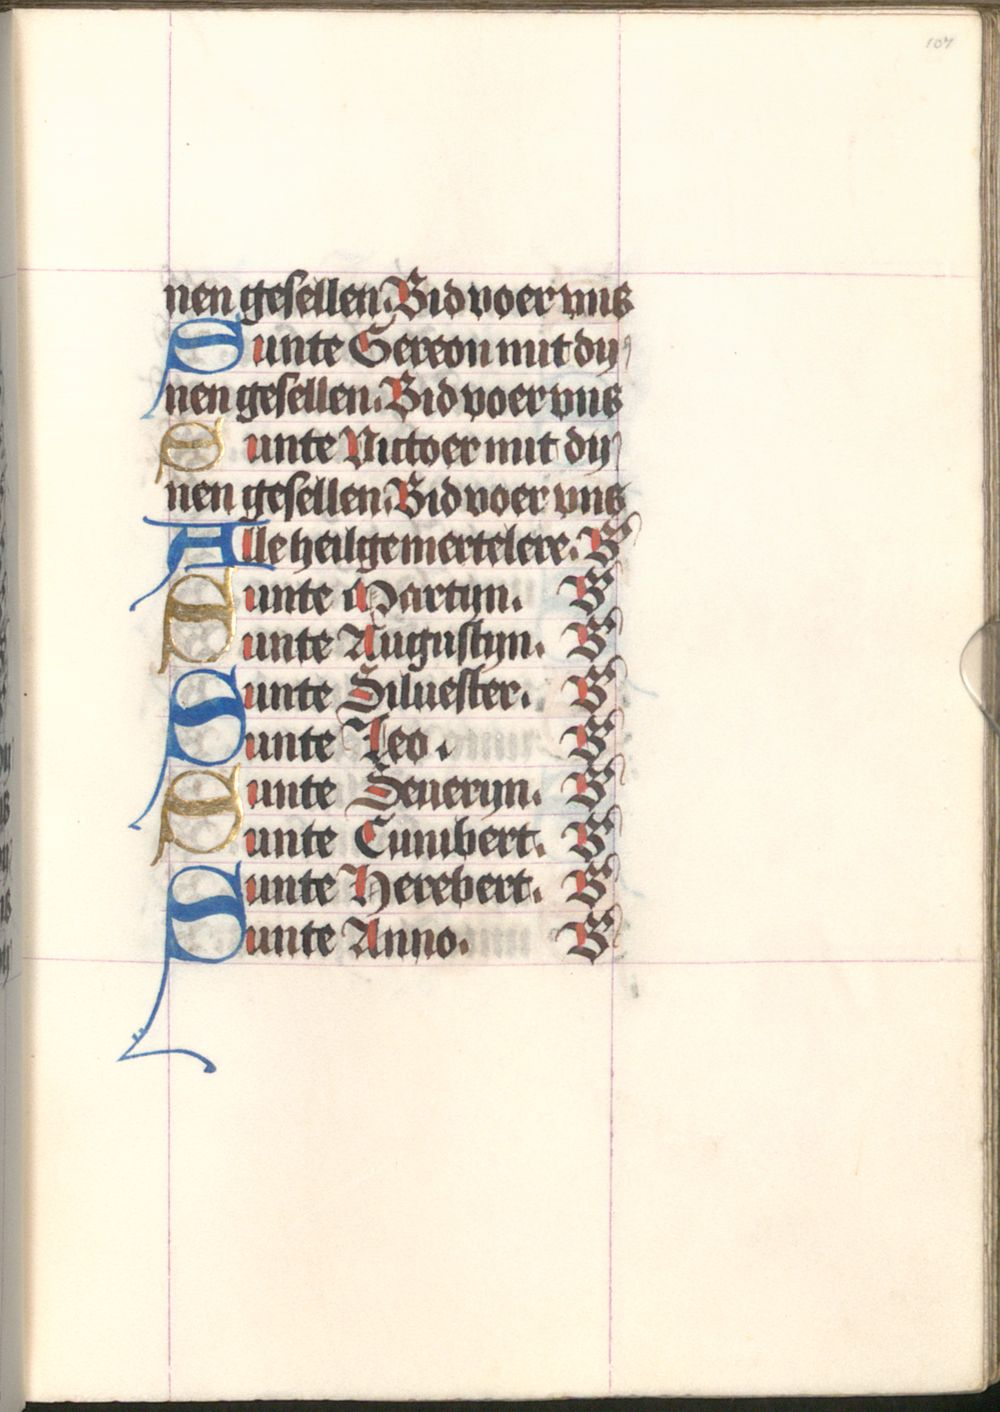 107
nen gesellen. Bid voer vnis
Sunte Gereon mit dy
nen gesellen. Bid voer vns
Sunte Victoer mit dy
nen gesellen. Bid voer vns
Alle heilge mertelere. B
Sunte Martyn. B
Sunte Augustyn. B
Sunte Siluester. B
Sunte Leo. B
Sunte Seueryn. B
Sunte Cunibert. B
Sunte Herebert. B
Sunte Anno. B